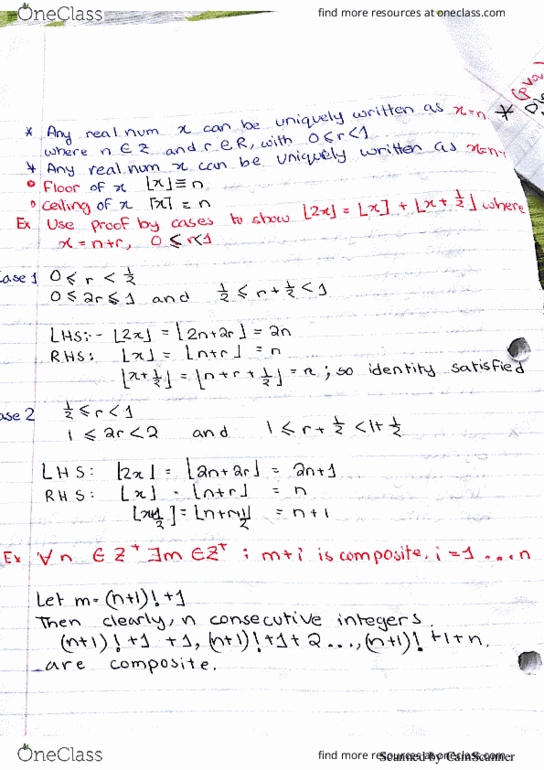 OneClass find more resources at oneclass.com
* Any real num x can be uniquely written as x=n
where n ∈ Z and r ∈ R, with 0 ≤ r < 1
* Any real num x can be uniquely written as x=n-
Floor of x ⌊x⌋ = n
ceiling of x ⌈x⌉ = n
Ex Use proof by cases to show ⌊2x⌋ = ⌊x⌋ + ⌊x + 1/2⌋ where
x = n+r, 0 ≤ r<1
ase 1 0 ≤ r < 1/2
0 ≤ 2r ≤ 1 and 1/2 ≤ r + 1/2 < 1
LHS:- ⌊2x⌋ = ⌊2n+2r⌋ = 2n
RHS: ⌊x⌋ = ⌊n+r⌋ = n
⌊x+1/2⌋ = ⌊n + r + 1/2⌋ = n ; so identity satisfied
ase 2 1/2 ≤ r < 1
1 ≤ 2r < 2 and 1 ≤ r + 1/2 < 1 + 1/2
LHS: ⌊2x⌋ = ⌊2n+2r⌋ = 2n+1
RHS: ⌊x⌋ = ⌊n+r⌋ = n
⌊x+1/2⌋ = ⌊n+r+1/2⌋ = n+1
Ex ∀n ∈ Z⁺ ∃m ∈ Z⁺ ; m+i is composite, i = 1 ... n
Let m = (n+1)! + 1
Then clearly, n consecutive integers.
(n+1)! + 1 + 1, (n+1)! + 1 + 2 ..., (n+1)! + 1 + n
are composite.
OneClass find more resources at oneclass.com
Scanned by CamScanner